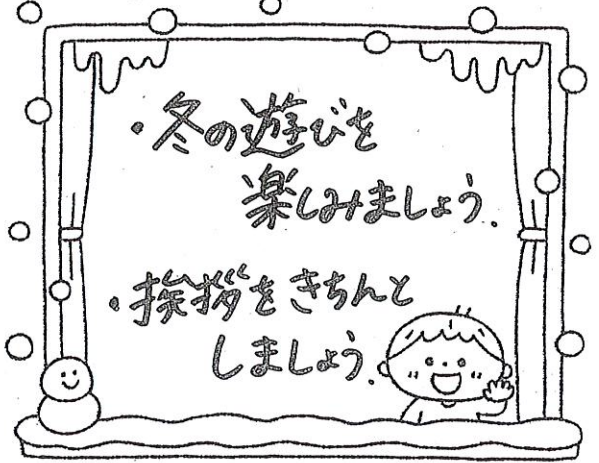 ・冬の遊びを
楽しみましょう.
・挨拶をきちんと
しましょう.